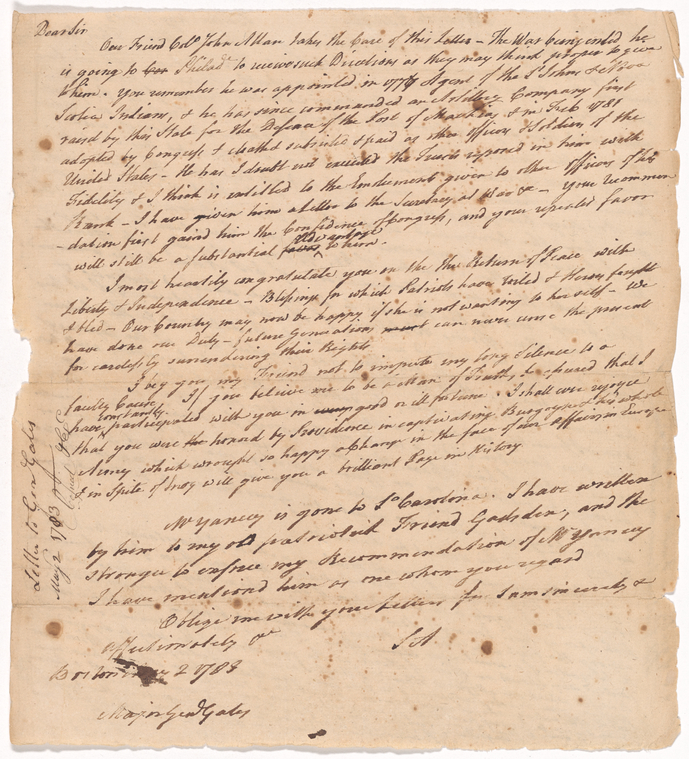 Dear Sir
Our Friend Colo John Allan takes the Care of this Letter - The War being ended he
is going to Philade to receive such Directions as they may think proper to give
to him. You remember he was appointed in 1777 Agent of the St Johns & Nova
Scotia Indians, & he has since commanded an Artillery Company first
raised by this State for the Defence of the Post of Machias & in Feb 1781
adopted by Congress & cloathed subsisted & paid as other Officers & Soldiers of the
United States - He has I doubt not executed the Trusts reposed in him with
Fidelity & I think is entitled to the Emoluments given to other Officers of his
Rank - I have given him a Letter to the Secretary at War &c - Your recommen
-dation first gaind him the Confidence of Congress, and your repeated favor
will still be a substantial Advantage to him.
I most heartily congratulate you on the the Return of Peace with
Liberty & Independence - Blessings for which Patriots have toiled & Heroes fought
& bled - Our Country may now be happy if she is not wanting to herself - We
have done our Duty - future Generations can never curse the present
for carelessly surrendering their Rights
I beg you my Friend not to impute my long Silence to a
faulty Cause. If you believe me to be a Man of Truth, be assured that I
have constantly participated with you in good or ill fortune. I shall ever rejoyce
that you were honord by Providence in captivating Burgoyne & his whole
Army which wrought so happy a Change in the face of our Affairs in Europe
& in Spite of Envy will give you a brilliant Page in History
Mr Yancey is gone to So Carolina. I have written
by him to my old patriotick Friend Gadsden, and the
stronger to enforce my Recommendation of Mr Yancey
I have mentiond him as one whom you regard
Oblige me with your Letters for I am sincerely &
affectionately yr
S A
Boston 2 1783
Major Genl Gates
Letter to Gen Gates
May 2 1783